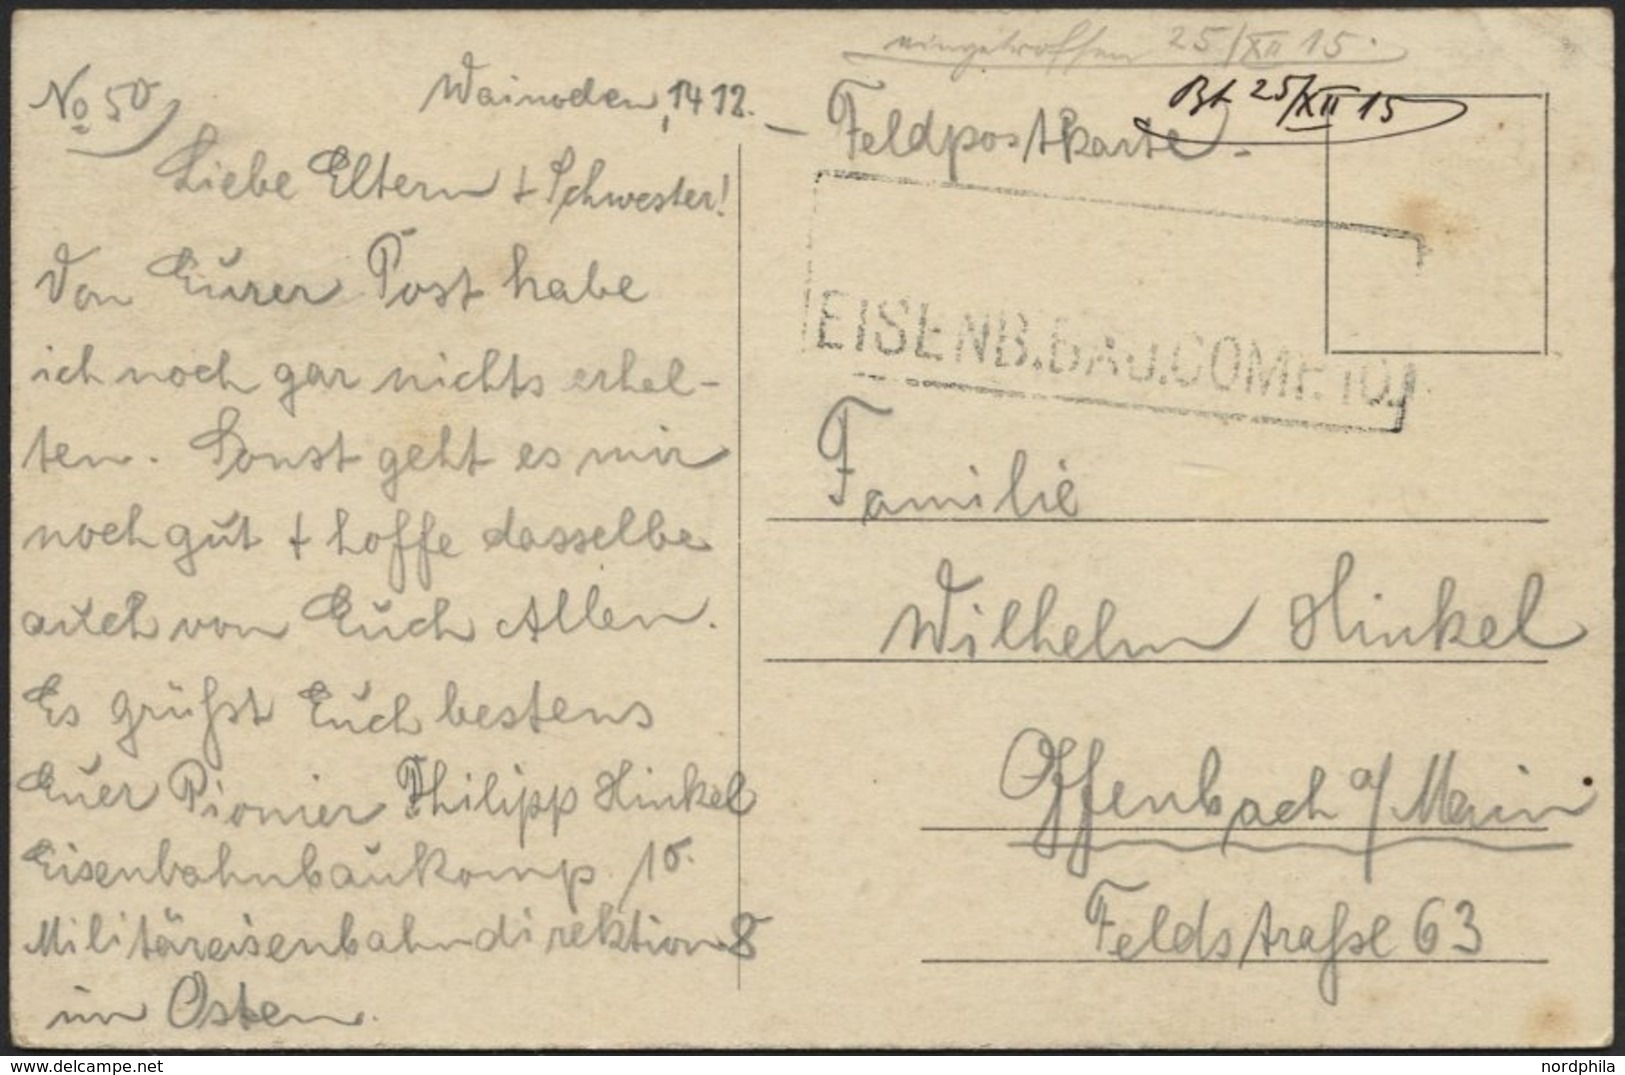 No 50
Wainoden, 14 12.
Liebe Eltern + Schwester!
Von Eurer Post habe
ich noch gar nichts erhal-
ten. Sonst geht es mir
noch gut + hoffe dasselbe
auch von Euch Allen.
Es grüßt Euch bestens
Euer Pionier Philipp Hinkel
Eisenbahnbaukomp. 10.
Militäreisenbahndirektion 8
im Osten.
eingetroffen 25/XII 15.
Bt 25/XII 15
- Feldpostkarte -
EISENB.BAU.COMP. 10.
Familie
Wilhelm Hinkel
Offenbach a/Main
Feldstraße 63
www.delcampe.net
nordphila